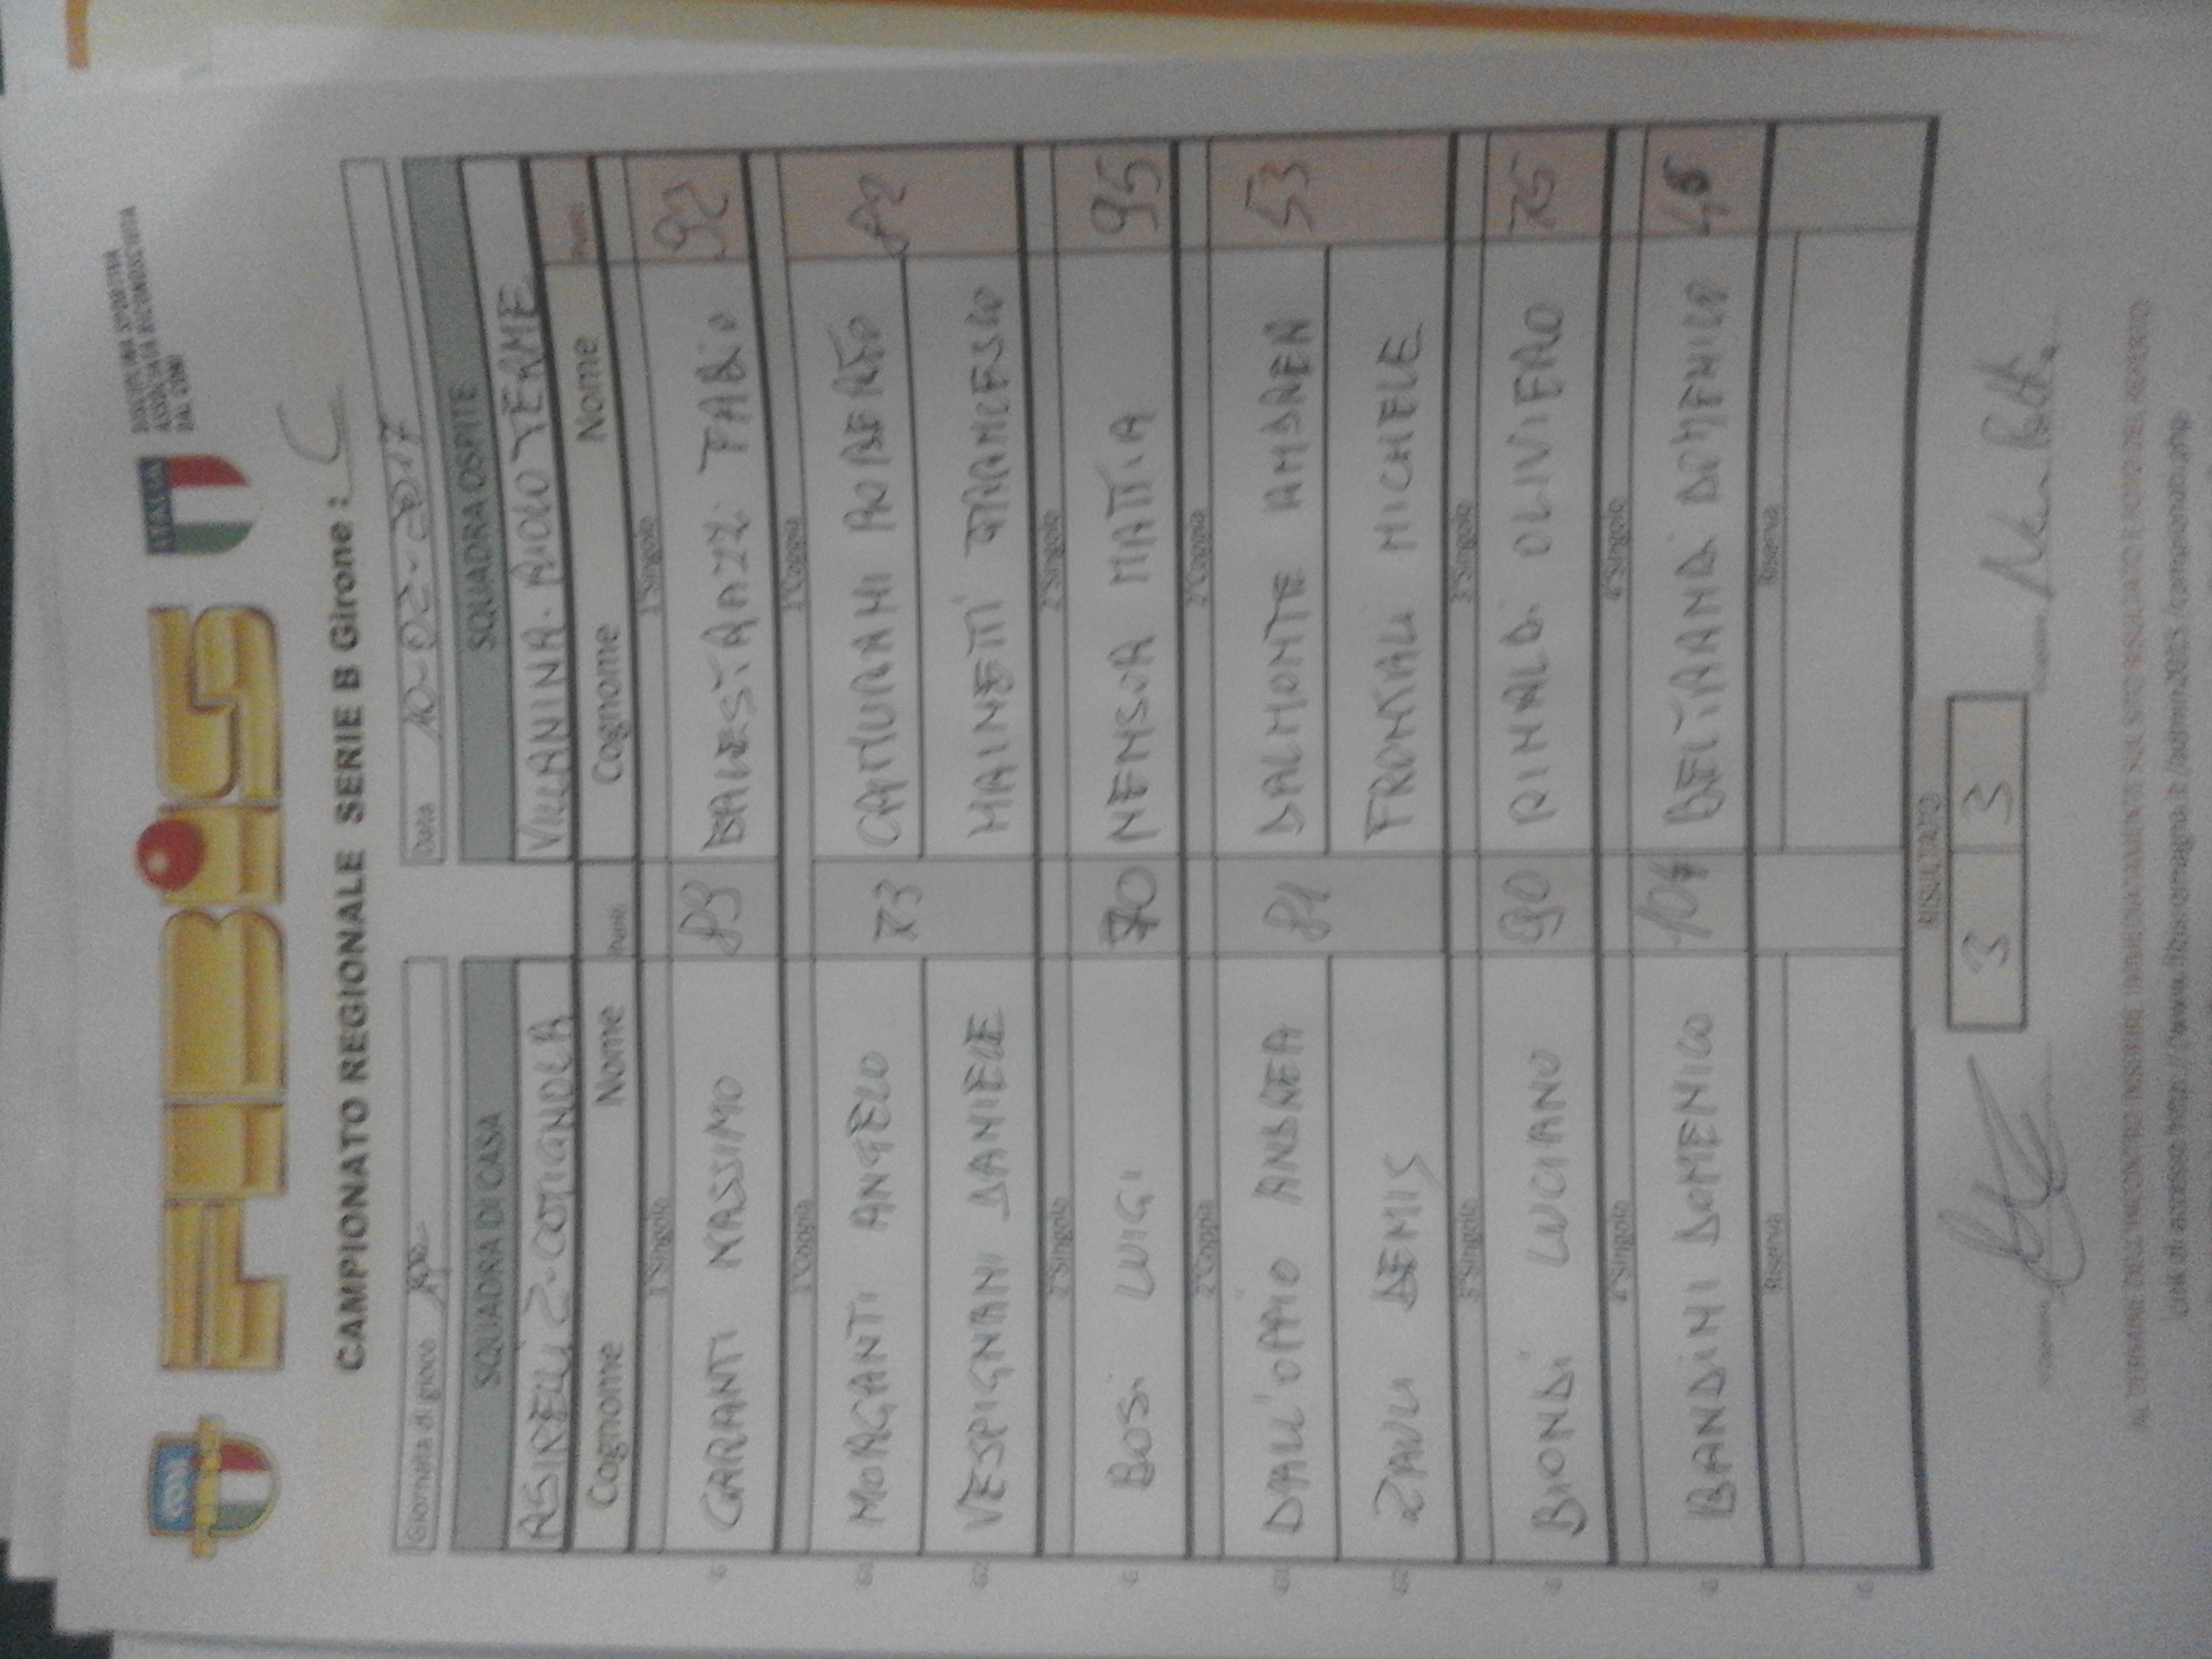 CONI
FIBiS
ITALIA
DISCIPLINA SPORTIVA
ASSOCIATA RICONOSCIUTA
DAL CONI
CAMPIONATO REGIONALE SERIE B Girone : C
Giornata di gioco
Data 10-02-2017
SQUADRA DI CASA SQUADRA OSPITE
ASIRELLI 2-COTIGNOLA VILLANINA. RIOLO TERME
Cognome Nome Punti Cognome Nome Punti
1°Singolo 1°Singolo
GARANTI MASSIMO 89 BALESTRAZZI FABIO 92
1°Coppia 1°Coppia
MORGANTI ANGELO 73 CAMURANI ROBERTO 82
VESPIGNANI DANIELE MAINETTI FRANCESCO
2°Singolo 2°Singolo
BOSI LUIGI 70 NENSOR MATTIA 95
2°Coppia 2°Coppia
DALL'OPPIO ANDREA 81 DALMONTE ANDREA 53
ZAULI DEMIS FRONTALI MICHELE
3°Singolo 3°Singolo
BIONDI LUCIANO 90 RINALDI OLIVIERO 75
4°Singolo 4°Singolo
BANDINI DOMENICO BELTRANDI DOMENICO
Riserva Riserva
RISULTATO
3 3
AL TERMINE DELL'INCONTRO INSERIRE IMMEDIATAMENTE SUL SITO RISULTATO E FOTO DEL REFERTO